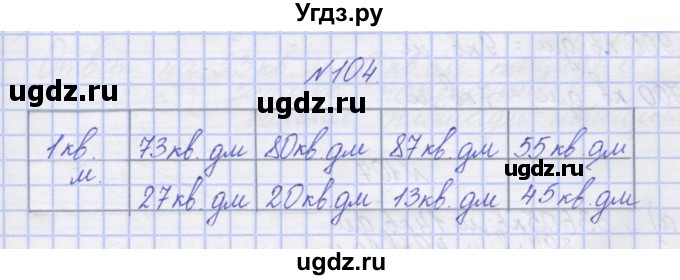 Угдз.ру
№104.
ugdz.ru ugdz.ru
1 кв. 73 кв. дм 80 кв. дм 87 кв. дм 55 кв дм
м. ugdz.ru
27 кв. дм 20 кв. дм 13 кв. дм 45 кв. дм
ugdz.ru ugdz.ru